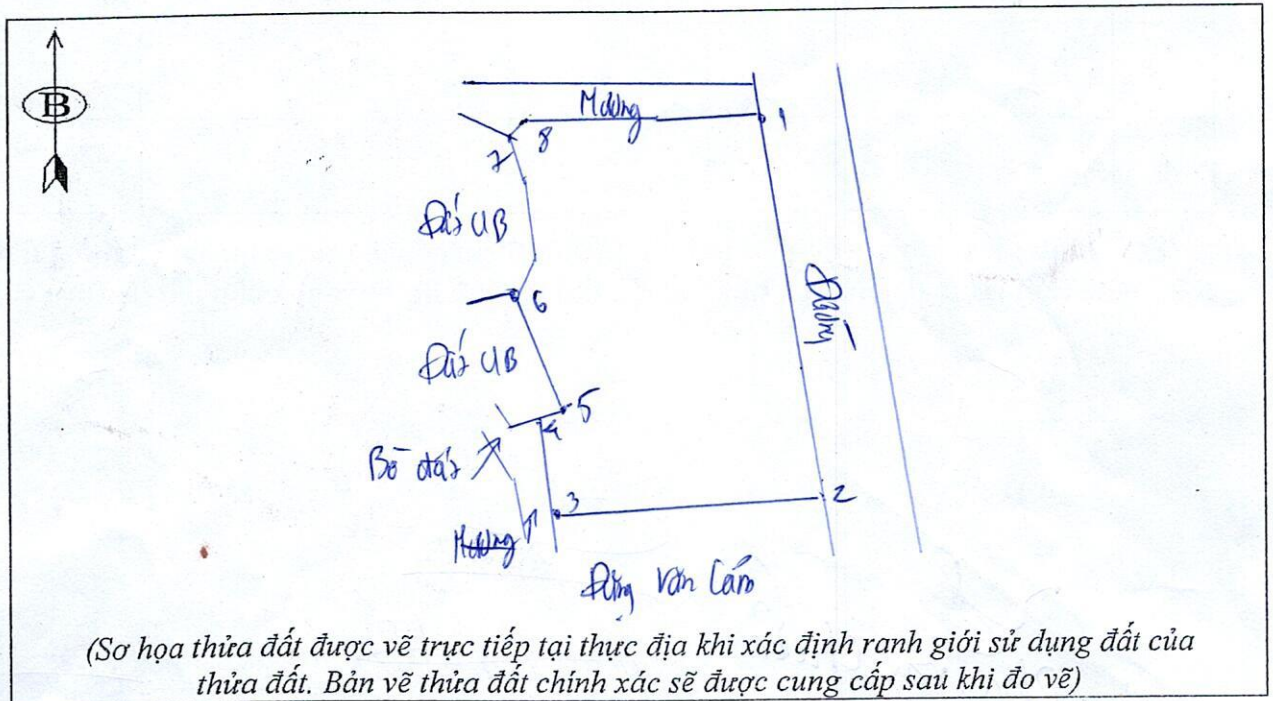 B
Mương
1
8
7
Đất UB
Đường
6
Đất UB
5
4
Bờ đất
2
3
Mương
Văn Cắm
(Sơ họa thửa đất được vẽ trực tiếp tại thực địa khi xác định ranh giới sử dụng đất của
thửa đất. Bản vẽ thửa đất chính xác sẽ được cung cấp sau khi đo vẽ)